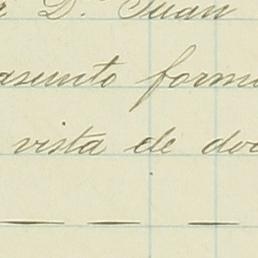 r D. Juan
asunto forma
vista de doc